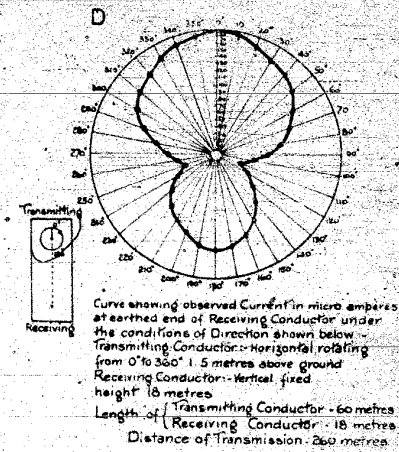 D
350° 0° 10°
340° 20°
330° 30°
320° 40°
310° 50°
300 60°
290° 70
280° 80°
270° 90°
260° 100°
250° 110
240 120
230° 130°
220° 140°
210° 200° 190° 180° 170° 160° 150°
Transmitting
Receiving
Curve showing observed Current in micro amperes
at earthed end of Receiving Conductor under
the conditions of Direction shown below
Transmitting Conductor:- Horizontal rotating
from 0° to 360° 1.5 metres above ground
Receiving Conductor:- Vertical fixed
height 18 metres
Length of { Transmitting Conductor - 60 metres
Receiving Conductor - 18 metres
Distance of Transmission - 260 metres